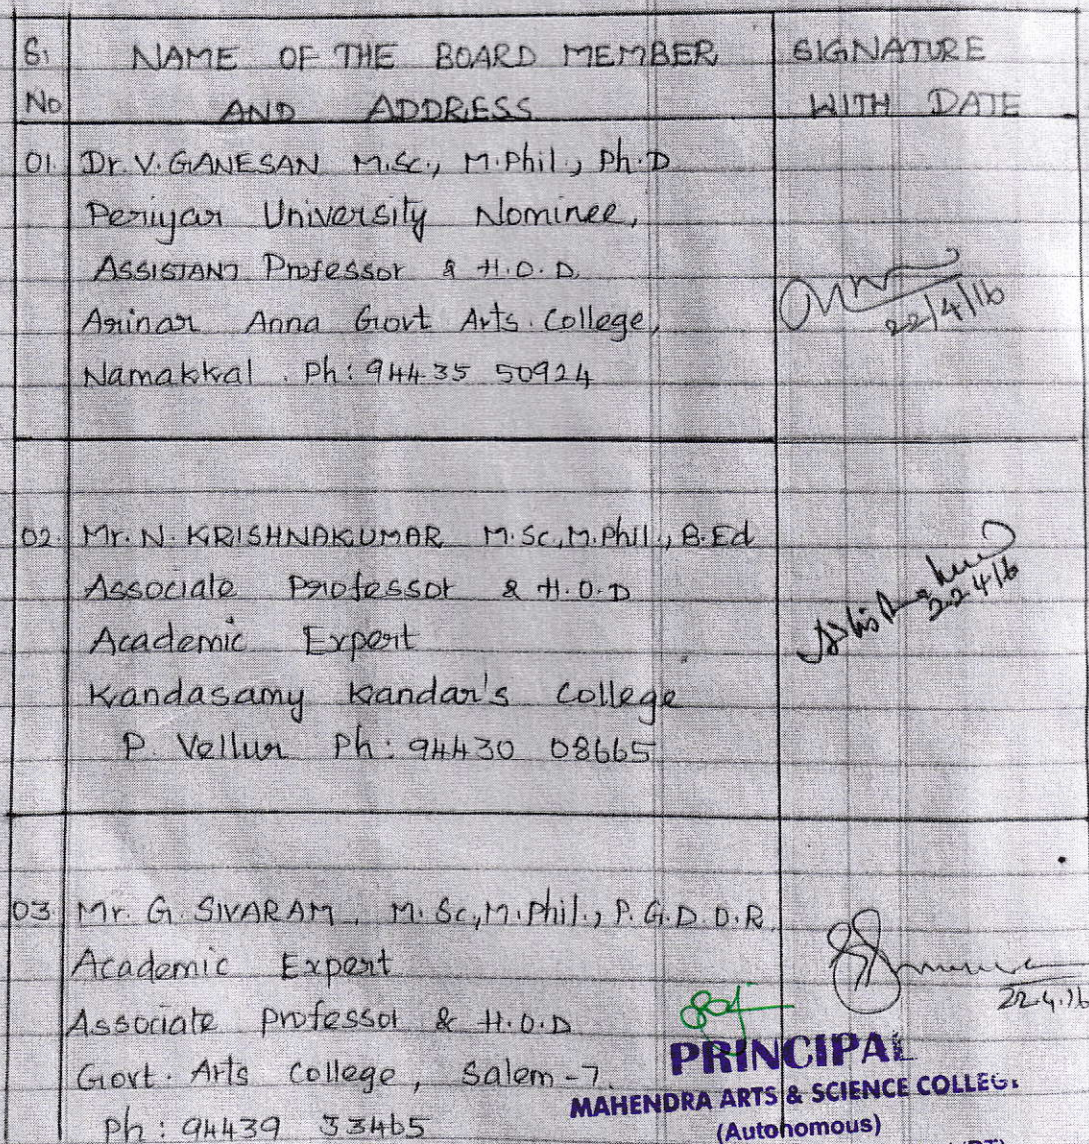 Sl NAME OF THE BOARD MEMBER SIGNATURE
No AND ADDRESS WITH DATE
01. Dr. V. GANESAN M.Sc., M.Phil., Ph.D
Periyar University Nominee,
ASSISTANT Professor & H.O.D
Arinar Anna Govt Arts College,
22/4/16
Namakkal. Ph: 94435 50924
02. Mr. N. KRISHNAKUMAR M.Sc, M.Phil., B.Ed
Associate Professor & H.O.D
22 4 16
Academic Expert
Kandasamy Kandar's College
P. Vellur Ph: 94430 08665
03. Mr. G. SIVARAM. M.Sc, M.Phil., P.G.D.O.R
Academic Expert
22.4.16
Associate Professor & H.O.D
Govt. Arts College, Salem-7.
Ph: 94439 33465
PRINCIPAL
MAHENDRA ARTS & SCIENCE COLLEGE
(Autonomous)